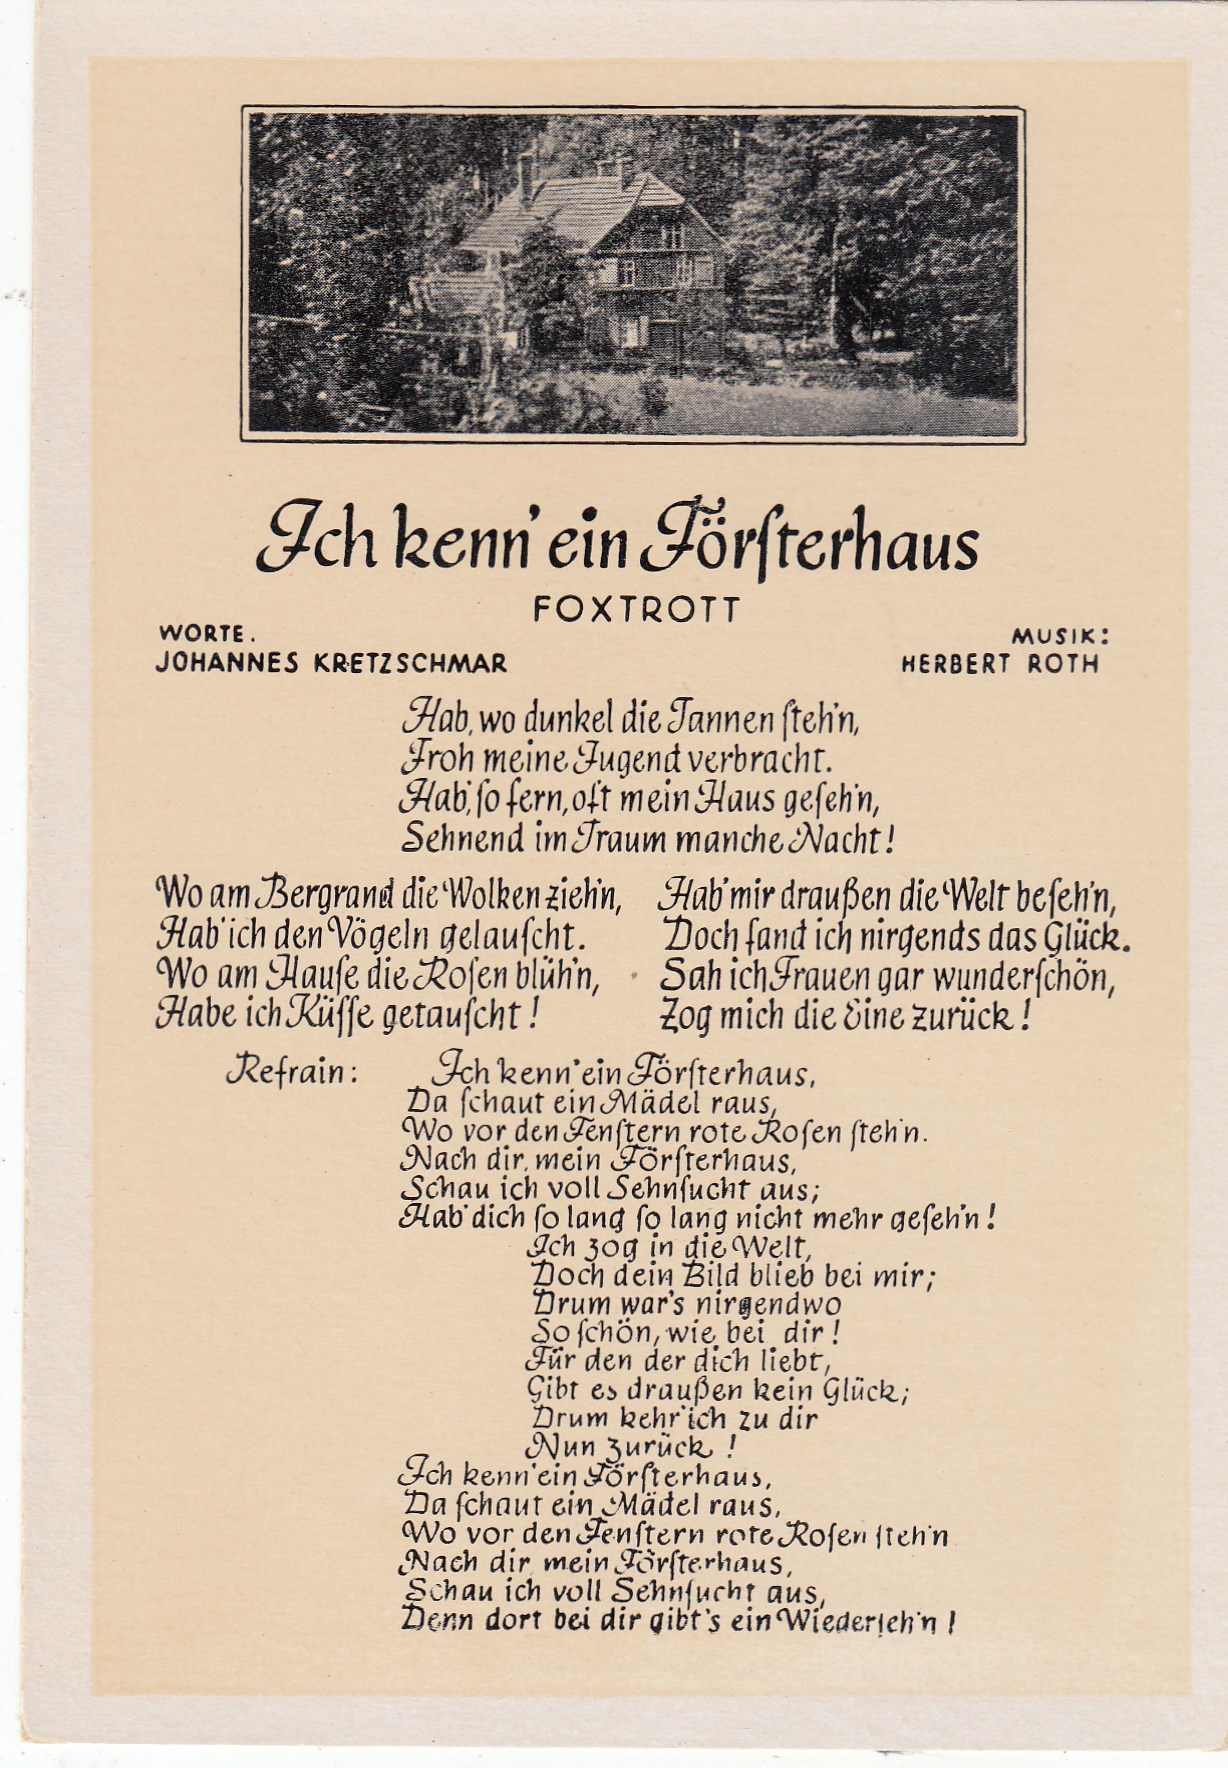 Ich kenn' ein Förſterhaus
FOXTROTT
WORTE.
JOHANNES KRETZSCHMAR
MUSIK:
HERBERT ROTH
Hab, wo dunkel die Tannen ſteh'n,
Froh meine Jugend verbracht.
Hab', ſo fern, oft mein Haus geſeh'n,
Sehnend im Traum manche Nacht!
Wo am Bergrand die Wolken zieh'n,
Hab' ich den Vögeln gelauſcht.
Wo am Hauſe die Roſen blüh'n,
Habe ich Küſſe getauſcht!
Hab' mir draußen die Welt beſeh'n,
Doch fand ich nirgends das Glück.
Sah ich Frauen gar wunderſchön,
Zog mich die Eine zurück!
Refrain: Ich kenn' ein Förſterhaus,
Da ſchaut ein Mädel raus,
Wo vor den Fenſtern rote Roſen ſteh'n.
Nach dir, mein Förſterhaus,
Schau ich voll Sehnſucht aus;
Hab' dich ſo lang ſo lang nicht mehr geſeh'n!
Ich zog in die Welt,
Doch dein Bild blieb bei mir;
Drum war's nirgendwo
So ſchön, wie bei dir!
Für den der dich liebt,
Gibt es draußen kein Glück;
Drum kehr' ich zu dir
Nun zurück!
Ich kenn' ein Förſterhaus,
Da ſchaut ein Mädel raus,
Wo vor den Fenſtern rote Roſen ſteh'n
Nach dir mein Förſterhaus,
Schau ich voll Sehnſucht aus,
Denn dort bei dir gibt's ein Wiederſeh'n!